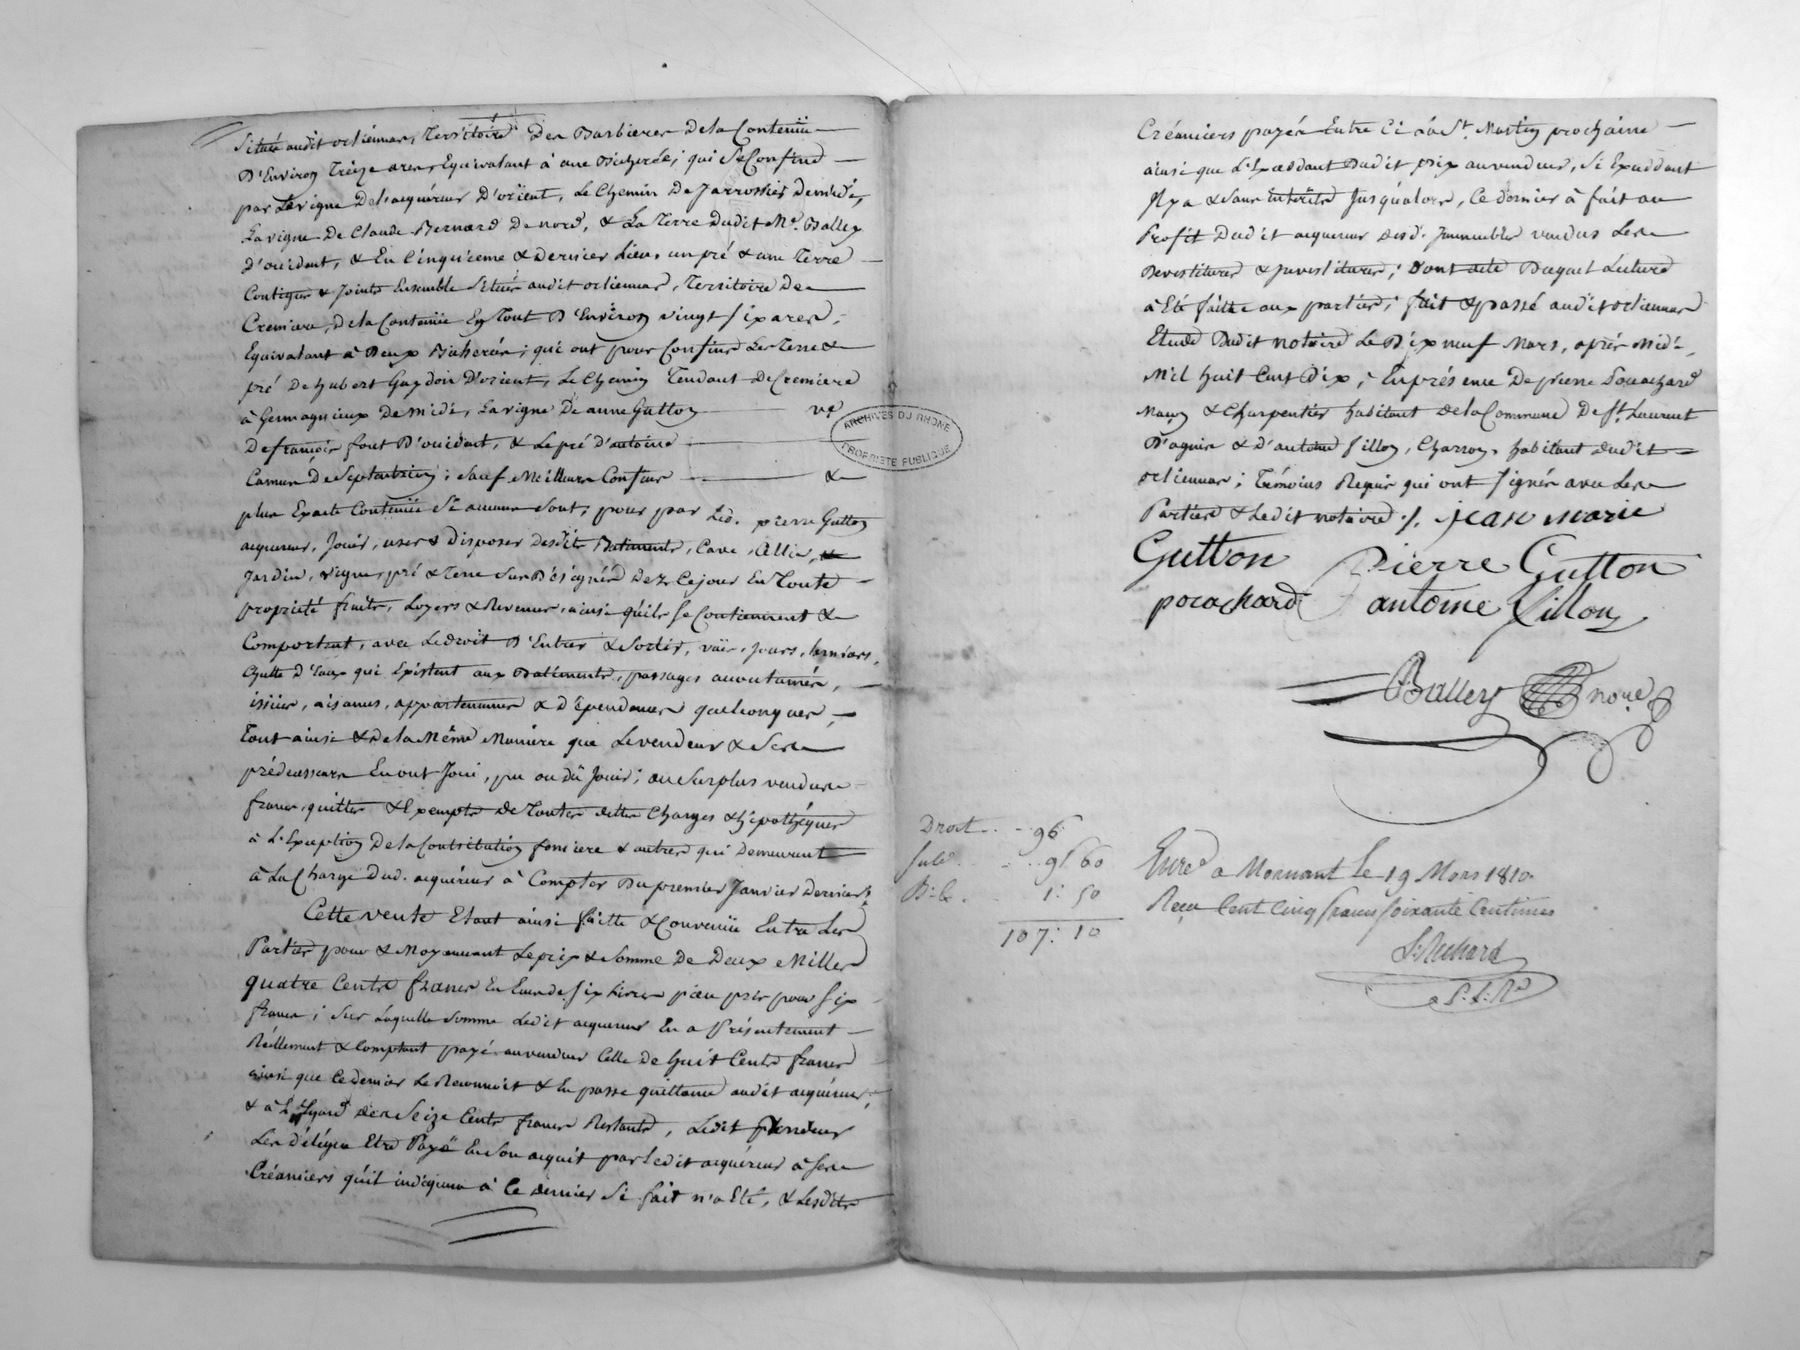 Située audit orliénnas, Territoire Des Barbieres De la Contenüe
D'Environ Treize ares, Equivalant à une Bicherée; qui Se Confine
par La vigne De l'acquéreur D'orient, Le Chemin De Jarrossier De midi,
La vigne De Claude Bernard De nord, & La Terre Dudit Me. Balley
d'occident, & En Cinquieme & Dernier Lieu, un pré & une Terre
Contigue & Joints Ensemble Situés audit orliennas, Territoire De
Cremiere, De la Contenüe En Tout D'Environ vingt Six ares,
Equivalant à Deux Bicherées; qui ont pour Confins Les Terre &
pré De hubert Guydon D'orient, Le Chemin Tendant De Cremiere
à Germagnieux De midi, La vigne De anne Gutton ve
De françois font D'occident, & Le pré D'antoine
Camus De Septantrion; Sauf Meilleurs Confins &
plus Exacte Contenüe Si aucuns Sont, pour par Led. pierre Gutton
acquereur, Jouir, user & Disposer Desdits Batiments, Cave, Cellier,
Jardin, vigne, pré & Terre Sus Désignés Dez Ce jour En Toute
proprieté fruits, Loyers & Revenus, ainsi qu'ils Se Contiennent &
Comportent, avec Le droit D'Entrer & Sortir, vües, Jours, Lumieres,
Chutte D'Eaux qui Existent aux Batiments, passages accoutumés,
issües, aisances, appartenances & dépendances quelconques,
Tout ainsi & De la Même Maniere que Le vendeur & Ses
prédecesseurs En ont Joui, pu ou dû Jouir; au Surplus vendus
francs, quittes & Exempts De Toutes dettes Charges & hipothéques
à L'Exception De la Contribution fonciere & autres qui Demeurent
à La Charge Dud. acquéreur à Compter Du premier Janvier Dernier;
Cette vente Etant ainsi faitte & Convenüe Entre Les
Parties pour & Moyennant Le prix & Somme De Deux Milles
quatre Cents francs En Ecus de Six Livres piece pris pour Six
francs; Sur Laquelle Somme Ledit acquereur En a Présentement
Réellement & Comptant payé au vendeur Celle De huit Cents francs
ainsi que Ce dernier Le Reconnoit & En passe quittance audit acquéreur;
& à L'Egard des Seize Cents francs Restants, Ledit vendeur
Les délégue Etre Payé En Son acquit par Ledit acquéreur à Ses
Créanciers qu'il indiquera à Ce dernier Si fait n'a Eté, & Lesdits
ARCHIVES DU RHONE
PROPRIETE PUBLIQUE
Créanciers payés Entre Ci & la St. Martin prochaine
ainsi que L'Excédant Dudit prix au vendeur, Si Excédant
Il y a & Sans intérêts Jusqu'alors, Ce dernier à fait au
Profit Dudit acquereur desd. Immeubles vendus Les
Devestitures & Investitures; Dont acte Duquel Lecture
à Eté faitte aux parties; fait & passé audit orliennas
Etude Dudit notaire Le Dix neuf Mars, après Midi,
Mil huit Cent Dix, En présence De pierre Pocachard
Maçon & Charpentier habitant de la Commune De St. Laurent
D'agnin & d'antoine fillon, Charron, habitant dudit
orliennas; Témoins Requis qui ont Signés avec Les
Parties & Ledit notaire ./. jean marie
Gutton Pierre Gutton
pocachard antoine fillon
Balley nore
Droit . . - 96
Subv. . . . 9 60
1: 50
107: 10
Enreg. a Mornant Le 19 Mars 1810.
Reçu Cent Cinq francs Soixante Centimes